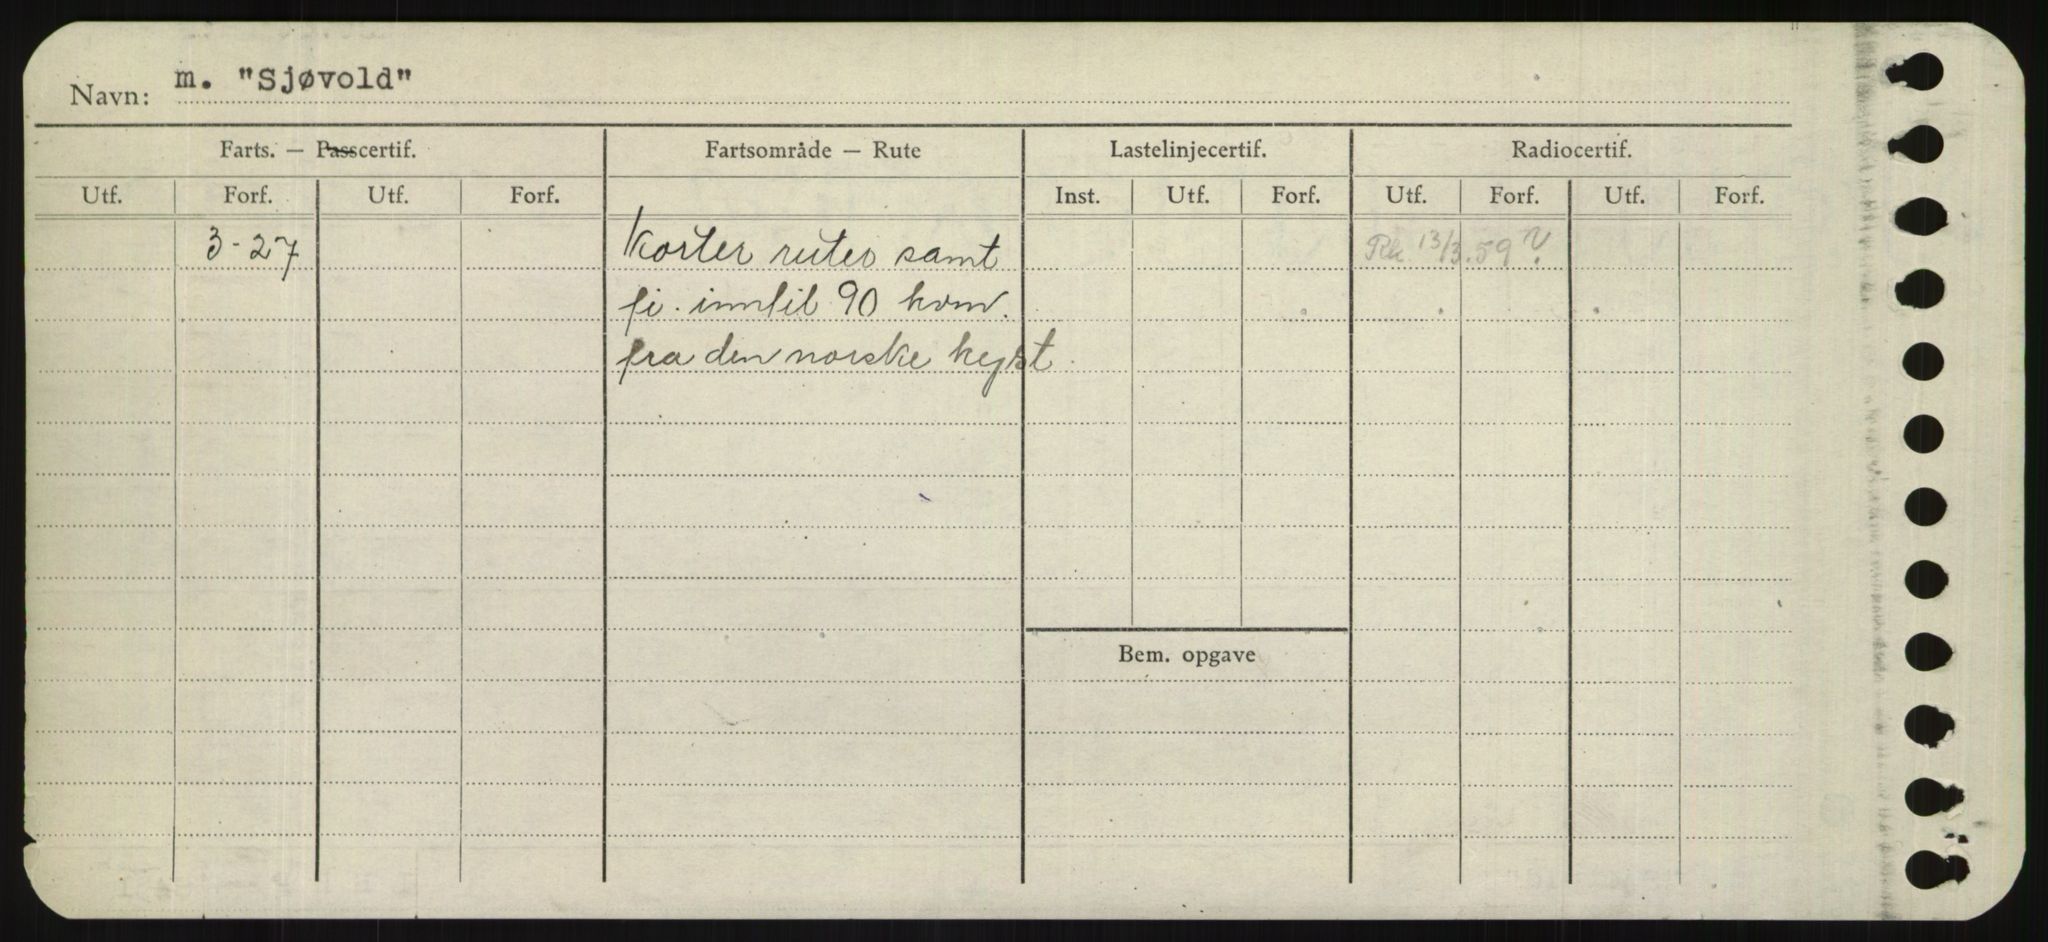 Navn: m. "Sjøvold"
Farts. — Passcertif. Fartsområde — Rute Lastelinjecertif. Radiocertif.
Utf. Forf. Utf. Forf. Inst. Utf. Forf. Utf. Forf. Utf. Forf.
3-27 Korter ruter samt Rk 13/3.59?
fi. inntil 90 kvm.
fra den norske kyst
Bem. opgave